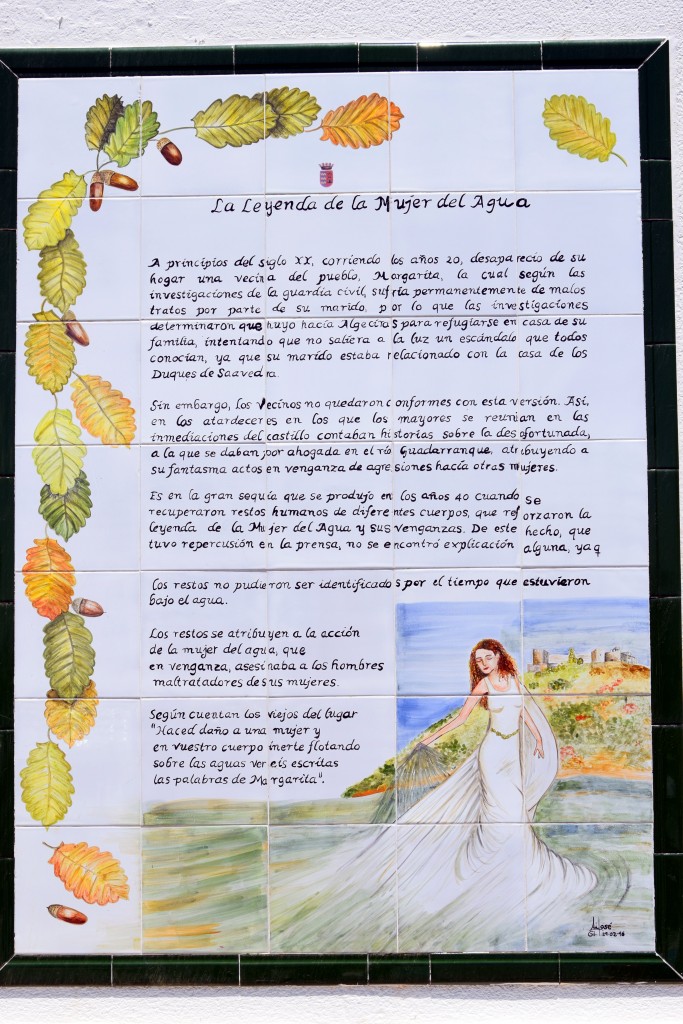 La Leyenda de la Mujer del Agua
A principios del siglo XX, corriendo los años 20, desaparecio de su
hogar una vecina del pueblo, Margarita, la cual según las
investigaciones de la guardia civil, sufría permanentemente de malos
tratos por parte de su marido, por lo que las investigaciones
determinaron que huyo hacía Algeciras para refugiarse en casa de su
familia, intentando que no saliera a la luz un escándalo que todos
conocían, ya que su marido estaba relacionado con la casa de los
Duques de Saavedra.
Sin embargo, los vecinos no quedaron conformes con esta versión. Así,
en los atardeceres en los que los mayores se reunian en las
inmediaciones del castillo contaban historias sobre la desafortunada,
a la que se daban por ahogada en el río Guadarranque, atribuyendo a
su fantasma actos en venganza de agresiones hacía otras mujeres.
Es en la gran sequía que se produjo en los años 40 cuando se
recuperaron restos humanos de diferentes cuerpos, que reforzaron la
leyenda de la Mujer del Agua y sus venganzas. De este hecho, que
tuvo repercusión en la prensa, no se encontró explicación alguna, ya q
los restos no pudieron ser identificados por el tiempo que estuvieron
bajo el agua.
Los restos se atribuyen a la acción
de la mujer del agua, que
en venganza, asesinaba a los hombres
maltratadores de sus mujeres.
Según cuentan los viejos del lugar
"Haced daño a una mujer y
en vuestro cuerpo inerte flotando
sobre las aguas vereis escritas
las palabras de Margarita".